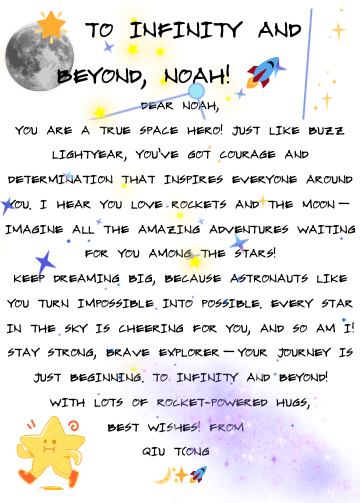 TO INFINITY AND
BEYOND, NOAH!
DEAR NOAH,
YOU ARE A TRUE SPACE HERO! JUST LIKE BUZZ
LIGHTYEAR, YOU'VE GOT COURAGE AND
DETERMINATION THAT INSPIRES EVERYONE AROUND
YOU. I HEAR YOU LOVE ROCKETS AND THE MOON—
IMAGINE ALL THE AMAZING ADVENTURES WAITING
FOR YOU AMONG THE STARS!
KEEP DREAMING BIG, BECAUSE ASTRONAUTS LIKE
YOU TURN IMPOSSIBLE INTO POSSIBLE. EVERY STAR
IN THE SKY IS CHEERING FOR YOU, AND SO AM I!
STAY STRONG, BRAVE EXPLORER—YOUR JOURNEY IS
JUST BEGINNING. TO INFINITY AND BEYOND!
WITH LOTS OF ROCKET-POWERED HUGS,
BEST WISHES! FROM
QIU TONG